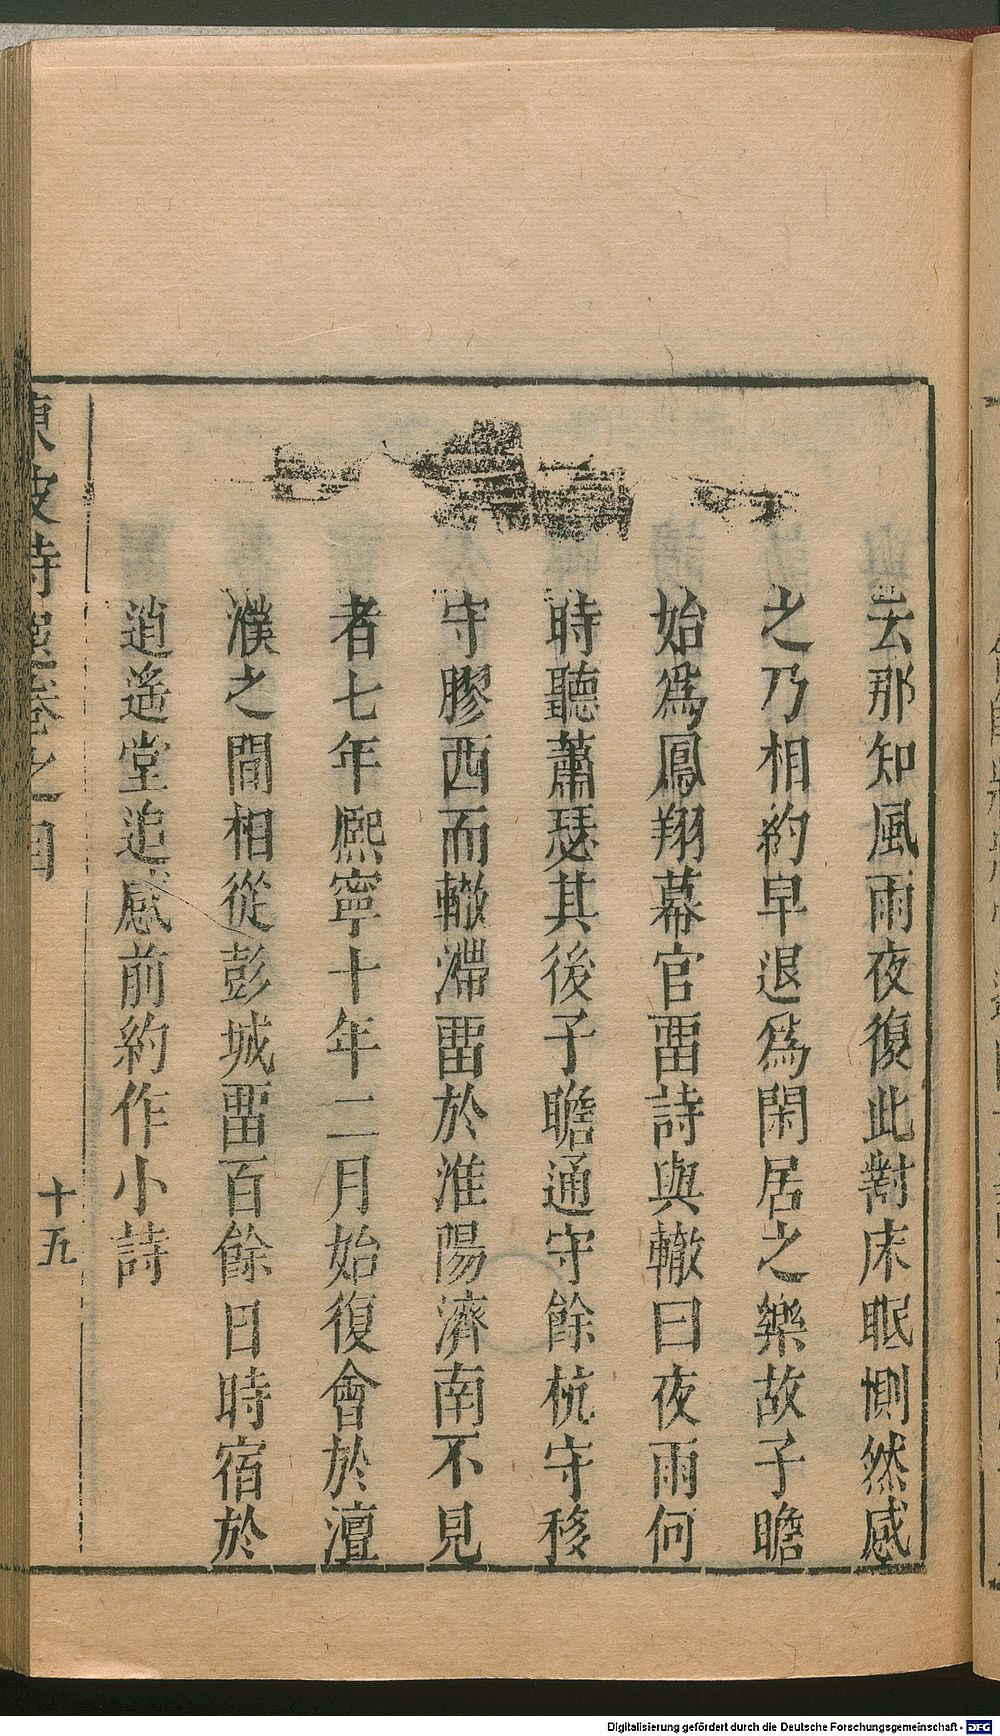 云那知風雨夜復此對床眠惻然感
之乃相約早退爲閑居之樂故子瞻
始爲鳳翔幕官畱詩與轍曰夜雨何
時聽蕭瑟其後子瞻通守餘杭守移
守膠西而轍滯畱於淮陽濟南不見
者七年熈寧十年二月始復會於澶
濮之間相從彭城畱百餘日時宿於
逍遙堂追感前約作小詩
東坡詩選卷之四
十五
Digitalisierung gefördert durch die Deutsche Forschungsgemeinschaft - DFG